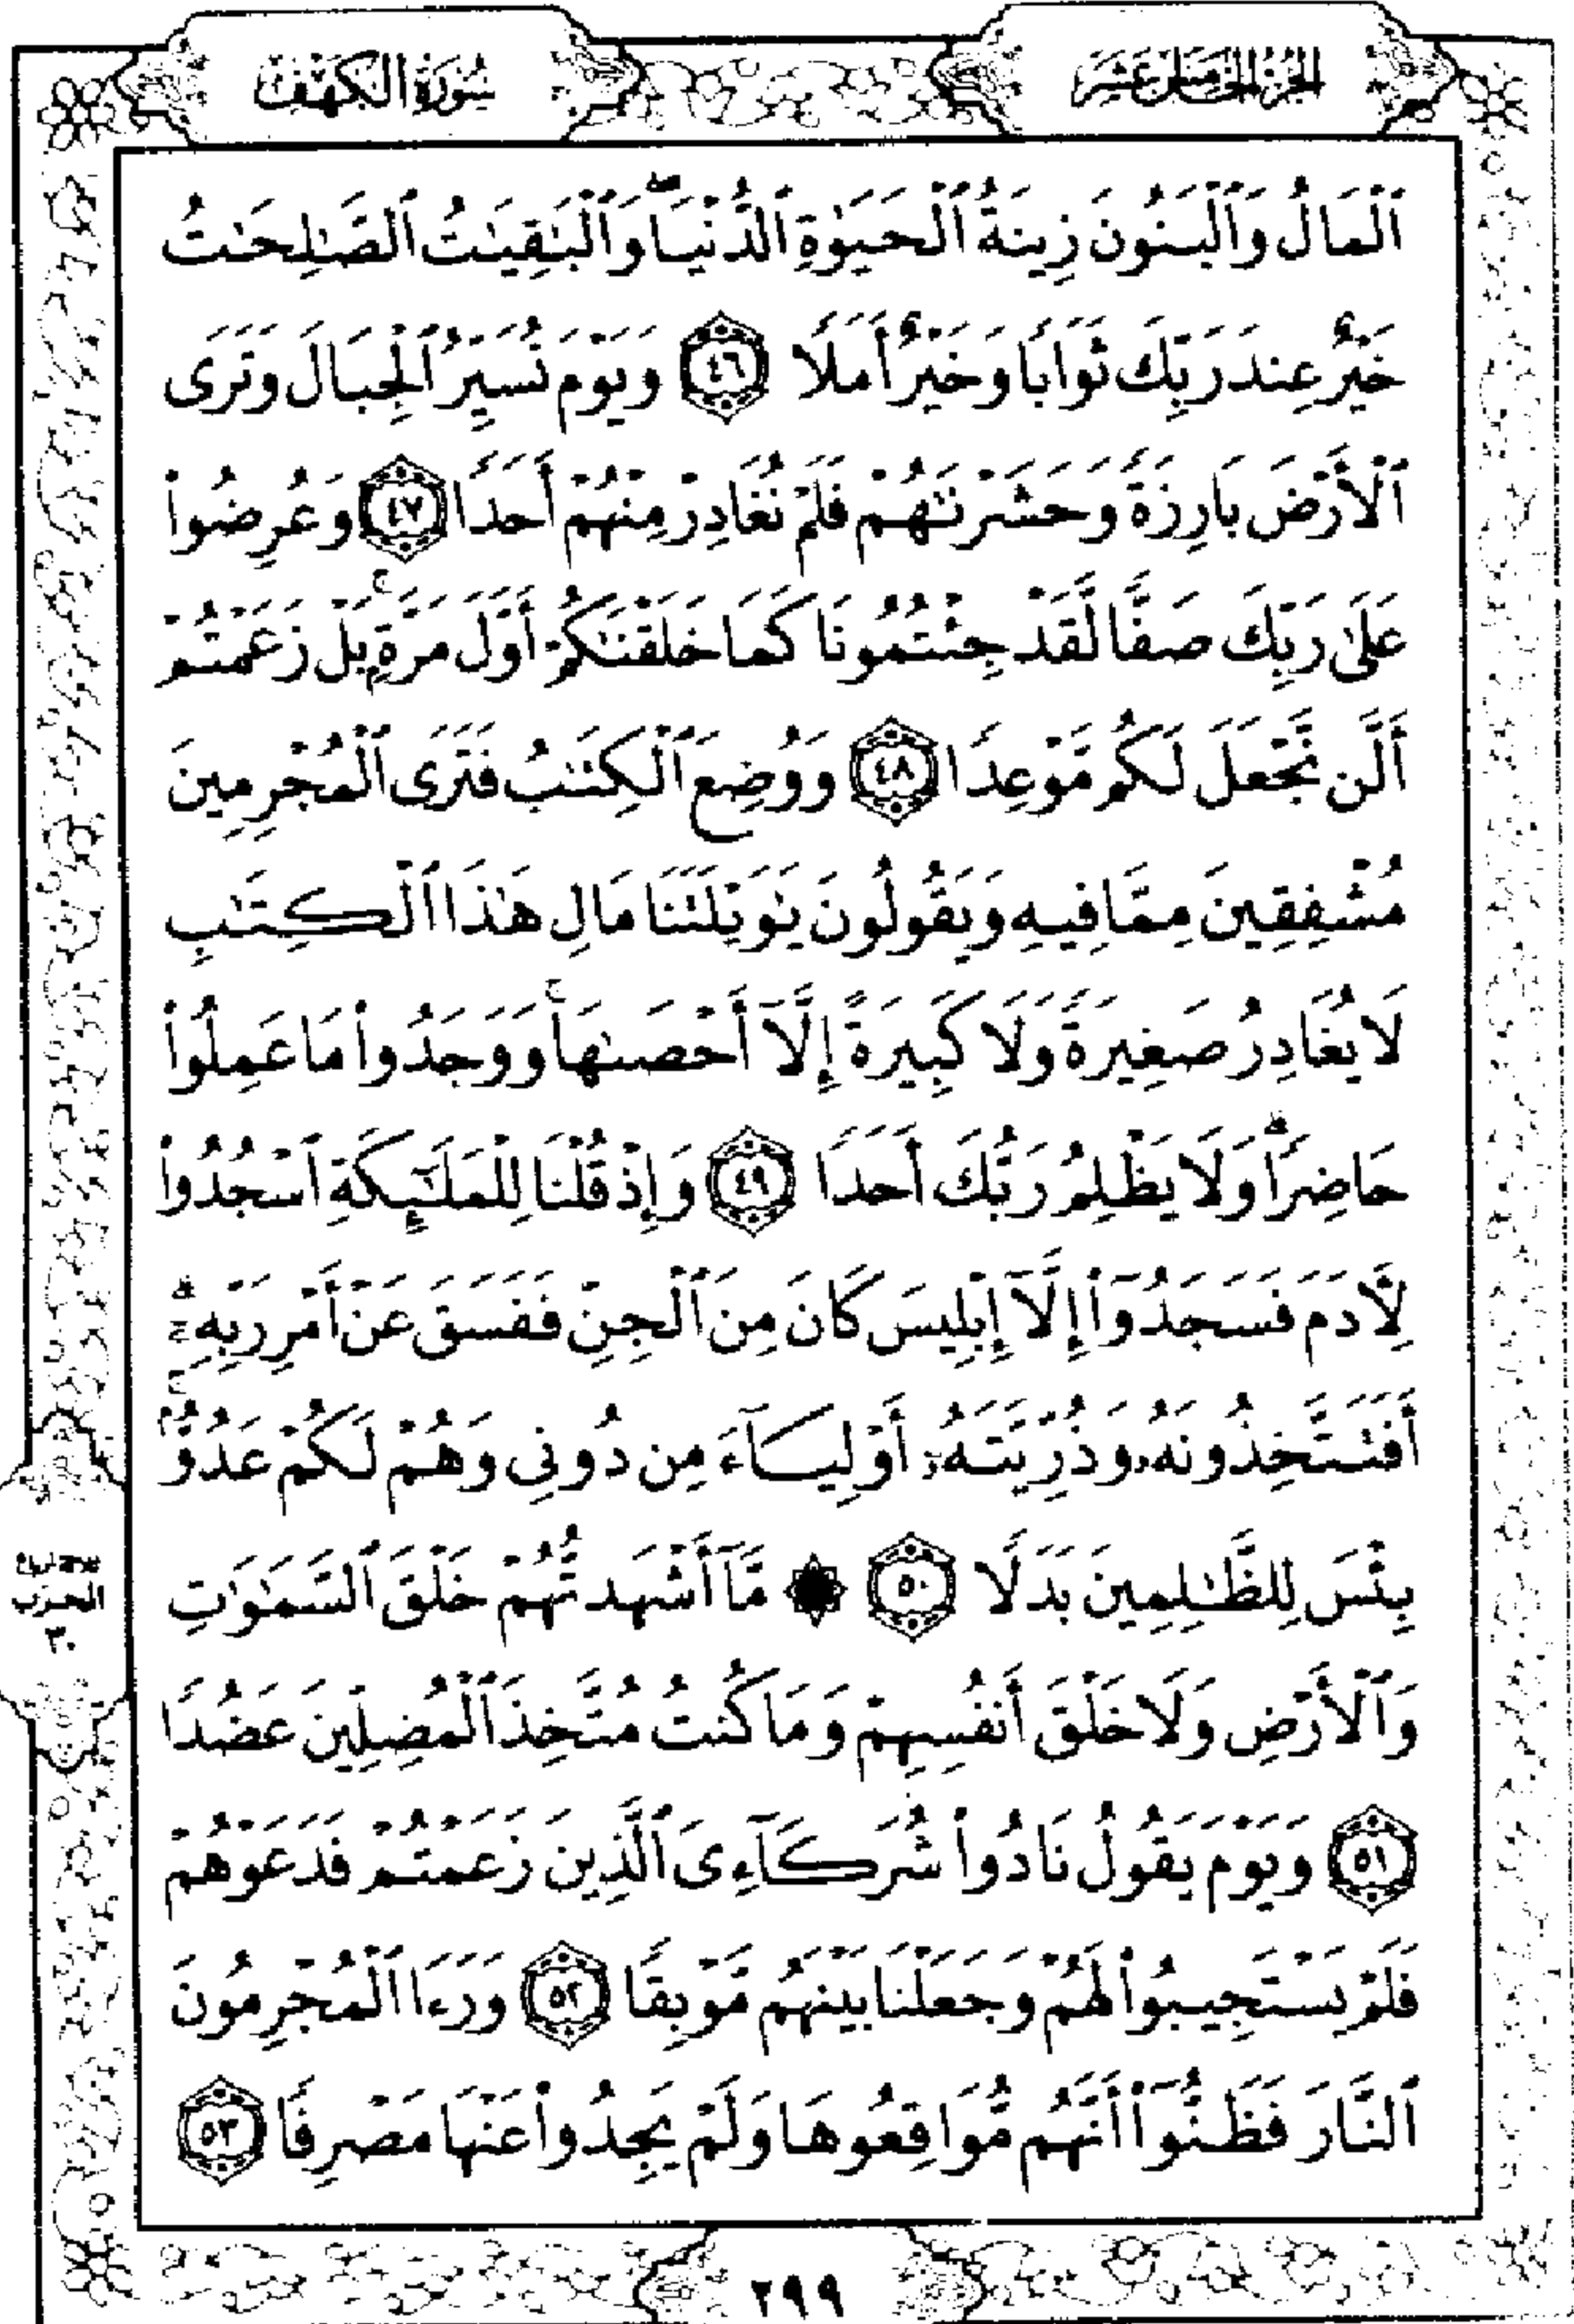 الجزء الخامس عشر
سورة الكهف
ٱلْمَالُ وَٱلْبَنُونَ زِينَةُ ٱلْحَيَوٰةِ ٱلدُّنْيَا ۖ وَٱلْبَٰقِيَٰتُ ٱلصَّٰلِحَٰتُ
خَيْرٌ عِندَ رَبِّكَ ثَوَابًا وَخَيْرٌ أَمَلًا ٤٦ وَيَوْمَ نُسَيِّرُ ٱلْجِبَالَ وَتَرَى
ٱلْأَرْضَ بَارِزَةً وَحَشَرْنَٰهُمْ فَلَمْ نُغَادِرْ مِنْهُمْ أَحَدًا ٤٧ وَعُرِضُوا۟
عَلَىٰ رَبِّكَ صَفًّا لَّقَدْ جِئْتُمُونَا كَمَا خَلَقْنَٰكُمْ أَوَّلَ مَرَّةٍۭ ۚ بَلْ زَعَمْتُمْ
أَلَّن نَّجْعَلَ لَكُم مَّوْعِدًا ٤٨ وَوُضِعَ ٱلْكِتَٰبُ فَتَرَى ٱلْمُجْرِمِينَ
مُشْفِقِينَ مِمَّا فِيهِ وَيَقُولُونَ يَٰوَيْلَتَنَا مَالِ هَٰذَا ٱلْكِتَٰبِ
لَا يُغَادِرُ صَغِيرَةً وَلَا كَبِيرَةً إِلَّآ أَحْصَىٰهَا ۚ وَوَجَدُوا۟ مَا عَمِلُوا۟
حَاضِرًا ۗ وَلَا يَظْلِمُ رَبُّكَ أَحَدًا ٤٩ وَإِذْ قُلْنَا لِلْمَلَٰٓئِكَةِ ٱسْجُدُوا۟
لِـَٔادَمَ فَسَجَدُوٓا۟ إِلَّآ إِبْلِيسَ كَانَ مِنَ ٱلْجِنِّ فَفَسَقَ عَنْ أَمْرِ رَبِّهِۦٓ ۗ
أَفَتَتَّخِذُونَهُۥ وَذُرِّيَّتَهُۥٓ أَوْلِيَآءَ مِن دُونِى وَهُمْ لَكُمْ عَدُوٌّۢ ۚ
بِئْسَ لِلظَّٰلِمِينَ بَدَلًا ٥٠ ۞ مَّآ أَشْهَدتُّهُمْ خَلْقَ ٱلسَّمَٰوَٰتِ
الحزب
٣٠
وَٱلْأَرْضِ وَلَا خَلْقَ أَنفُسِهِمْ وَمَا كُنتُ مُتَّخِذَ ٱلْمُضِلِّينَ عَضُدًا
٥١ وَيَوْمَ يَقُولُ نَادُوا۟ شُرَكَآءِىَ ٱلَّذِينَ زَعَمْتُمْ فَدَعَوْهُمْ
فَلَمْ يَسْتَجِيبُوا۟ لَهُمْ وَجَعَلْنَا بَيْنَهُم مَّوْبِقًا ٥٢ وَرَءَا ٱلْمُجْرِمُونَ
ٱلنَّارَ فَظَنُّوٓا۟ أَنَّهُم مُّوَاقِعُوهَا وَلَمْ يَجِدُوا۟ عَنْهَا مَصْرِفًا ٥٣
٢٩٩